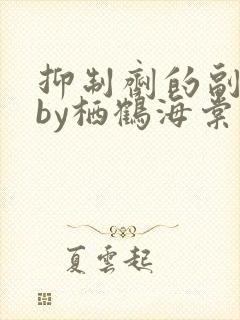 抑制剂的副
by栖鹤海棠
夏云起